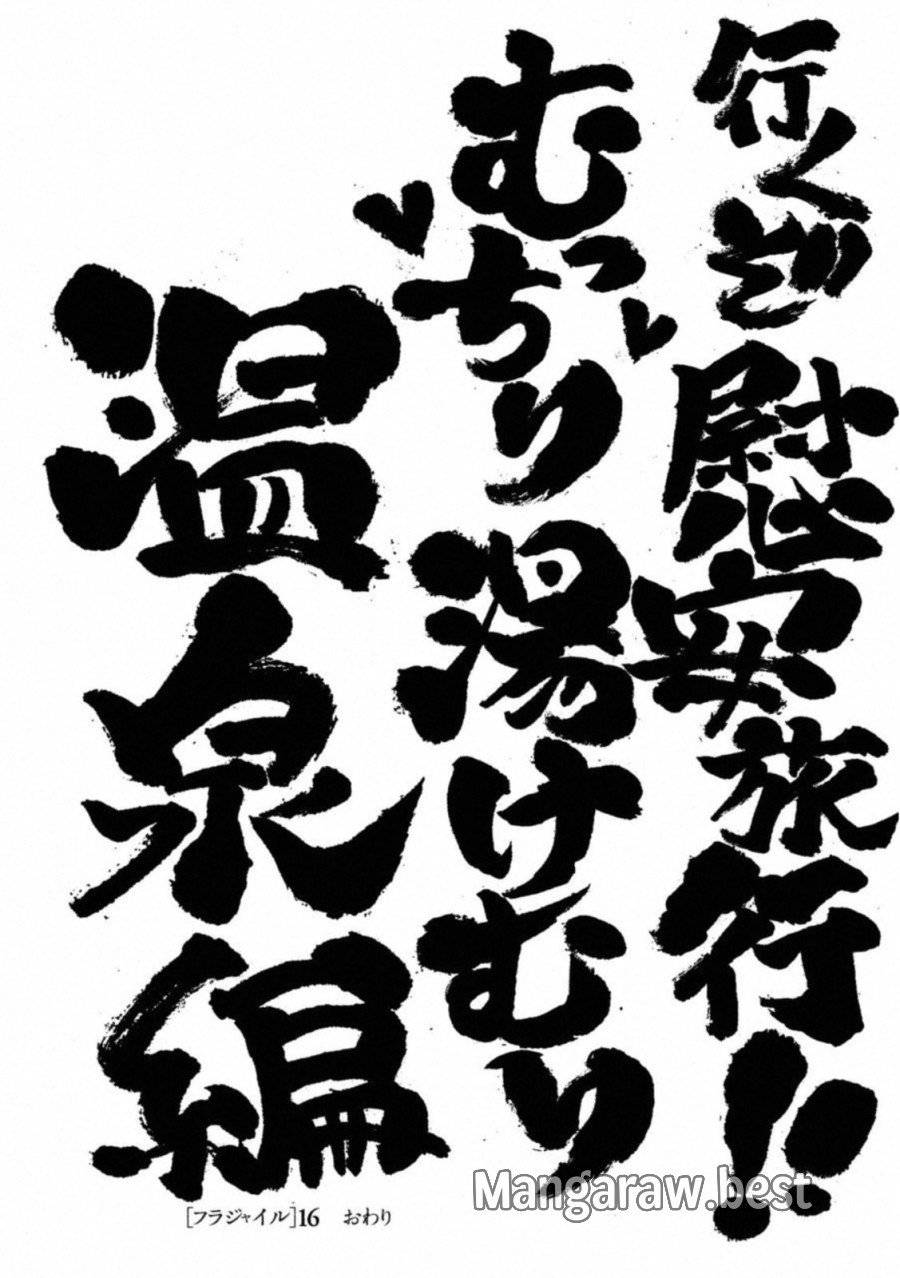 行くぞ慰安旅行!!
むっちり♥♥湯けむり
温泉編
[フラジャイル]16 おわり
Mangaraw.best